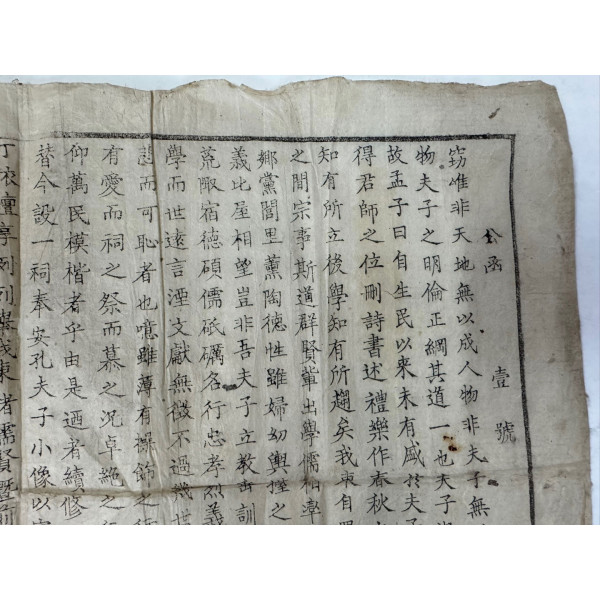 公函 壹號
窃惟非天地無以成人物非夫子無
物夫子之明倫正綱其道一也夫子
故孟子曰自生民以來未有盛於夫子
得君師之位刪詩書述禮樂作春秋
知有所立後學知有所趨矣我東自
之間宗事斯道群賢輩出學儒相
鄉黨閭里薰陶德性雖婦幼輿儓之
義比屋相望豈非吾夫子立教垂訓
荒陬宿德碩儒砥礪名行忠孝烈義
學而世遠言湮文獻無徵不過幾世
悲而可恥者也噫雖薄有操飭之
有愛而祠之祭而慕之況卓絶之
仰萬民模楷者乎由是迺者續修
替今設一祠奉安孔夫子小像以
亭列列擧我東者儒賢曁前